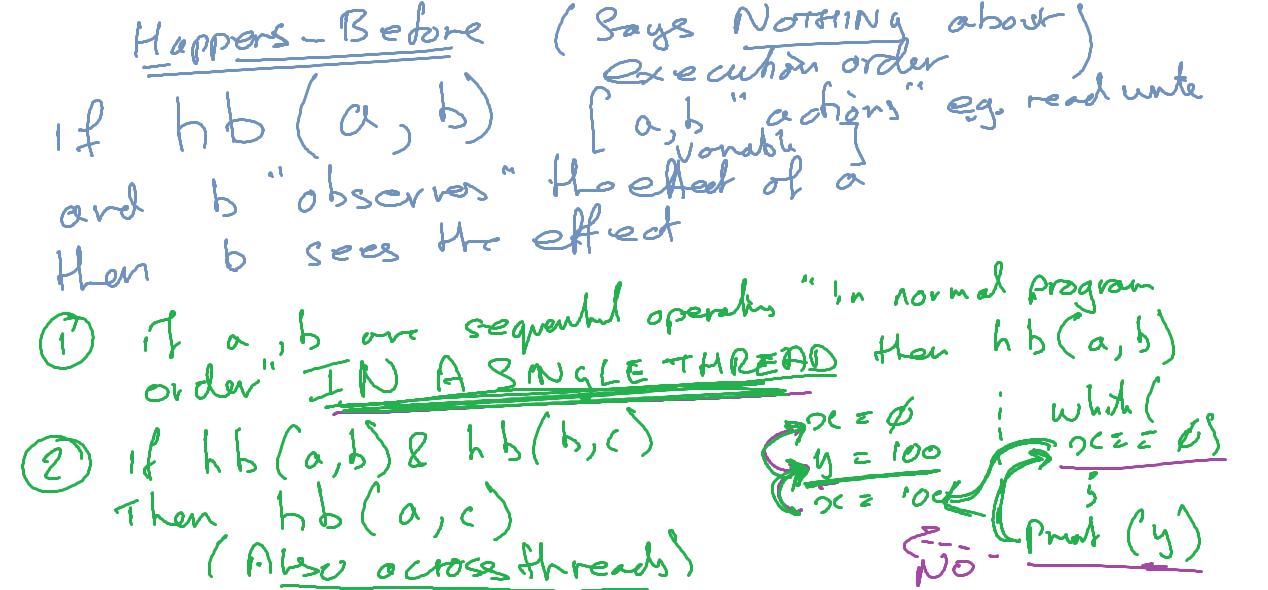 Happens-Before (Says NOTHING about)
execution order
if hb(a,b) [a,b "actions" e.g. read write
variable]
and b "observes" the effect of a
then b sees the effect
① if a,b are sequential operations "in normal program
order" IN A SINGLE THREAD then hb(a,b)
② if hb(a,b) & hb(b,c)
Then hb(a,c)
(Also across threads)
x = 0
y = 100
x = 100
; while(
x == 0)
;
print (y)
NO